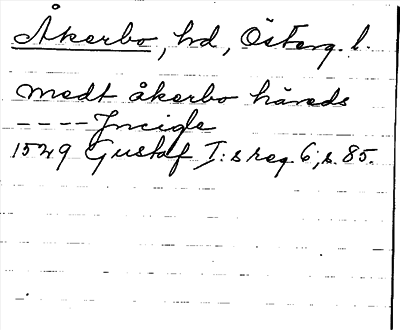 Åkerbo, hd, Österg. l.
medt åkerbo häreds
----Incigle
1529 Gustaf I:s reg. 6, s. 85.